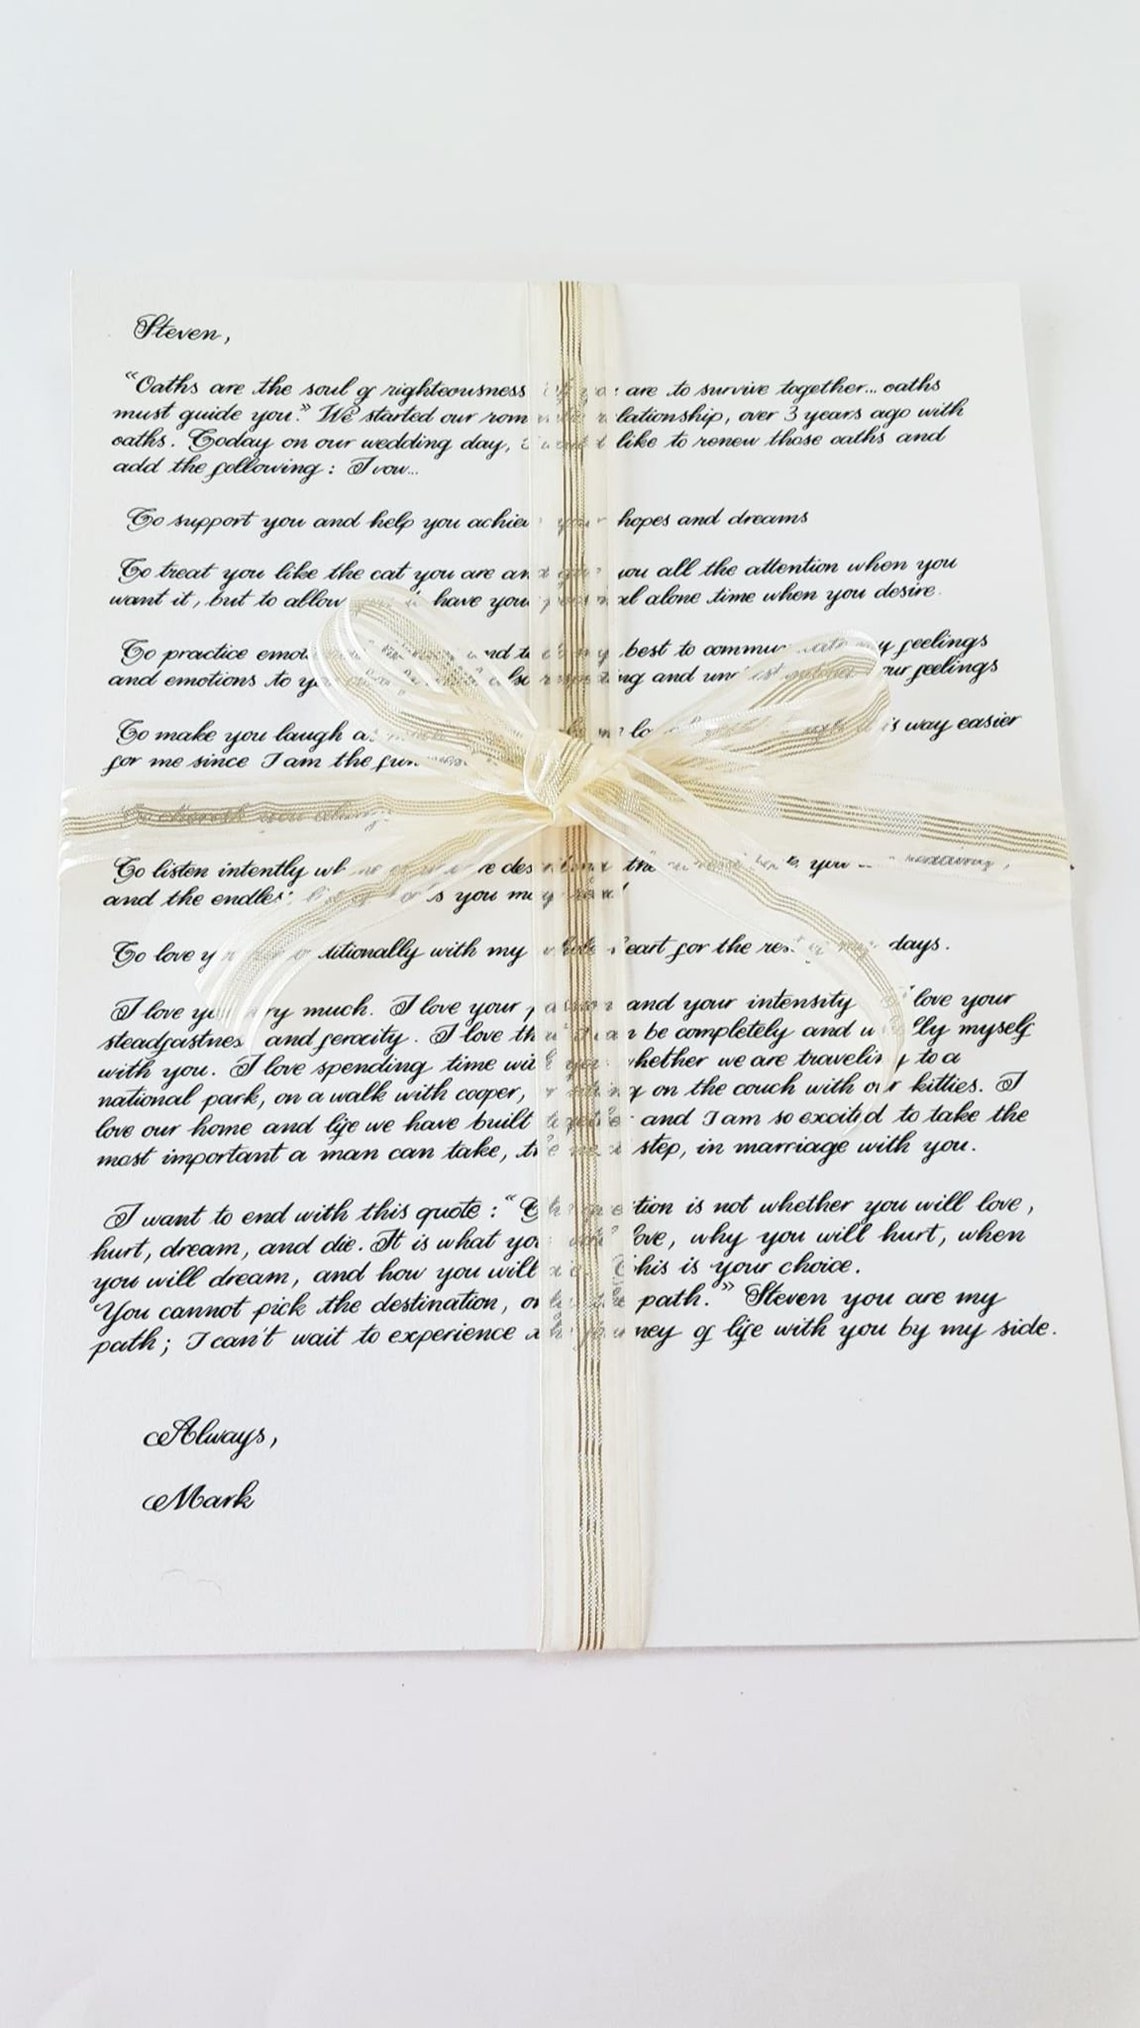 Steven,
"Oaths are the soul of righteousness if you are to survive together... oaths
must guide you." We started our romantic relationship, over 3 years ago with
oaths. Today on our wedding day, I would like to renew those oaths and
add the following: I vow...
To support you and help you achieve your hopes and dreams
To treat you like the cat you are and give you all the attention when you
want it, but to allow you to have your personal alone time when you desire.
To practice and to do my best to communicate my feelings
and emotions to you also and feelings
To make you laugh as is way easier
for me since I am the
To cherish you always
To listen intently the you
and the endless you may
To love you unconditionally with my whole heart for the rest of my days.
I love you very much. I love your passion and your intensity. I love your
steadfastness and ferocity. I love that I can be completely and wholly myself
with you. I love spending time with you whether we are traveling to a
national park, on a walk with cooper, or sitting on the couch with our kitties. I
love our home and life we have built together and I am so excited to take the
most important a man can take, the next step, in marriage with you.
I want to end with this quote: "The question is not whether you will love,
hurt, dream, and die. It is what you will love, why you will hurt, when
you will dream, and how you will die. This is your choice.
You cannot pick the destination, only the path." Steven you are my
path; I can't wait to experience the journey of life with you by my side.
Always,
Mark